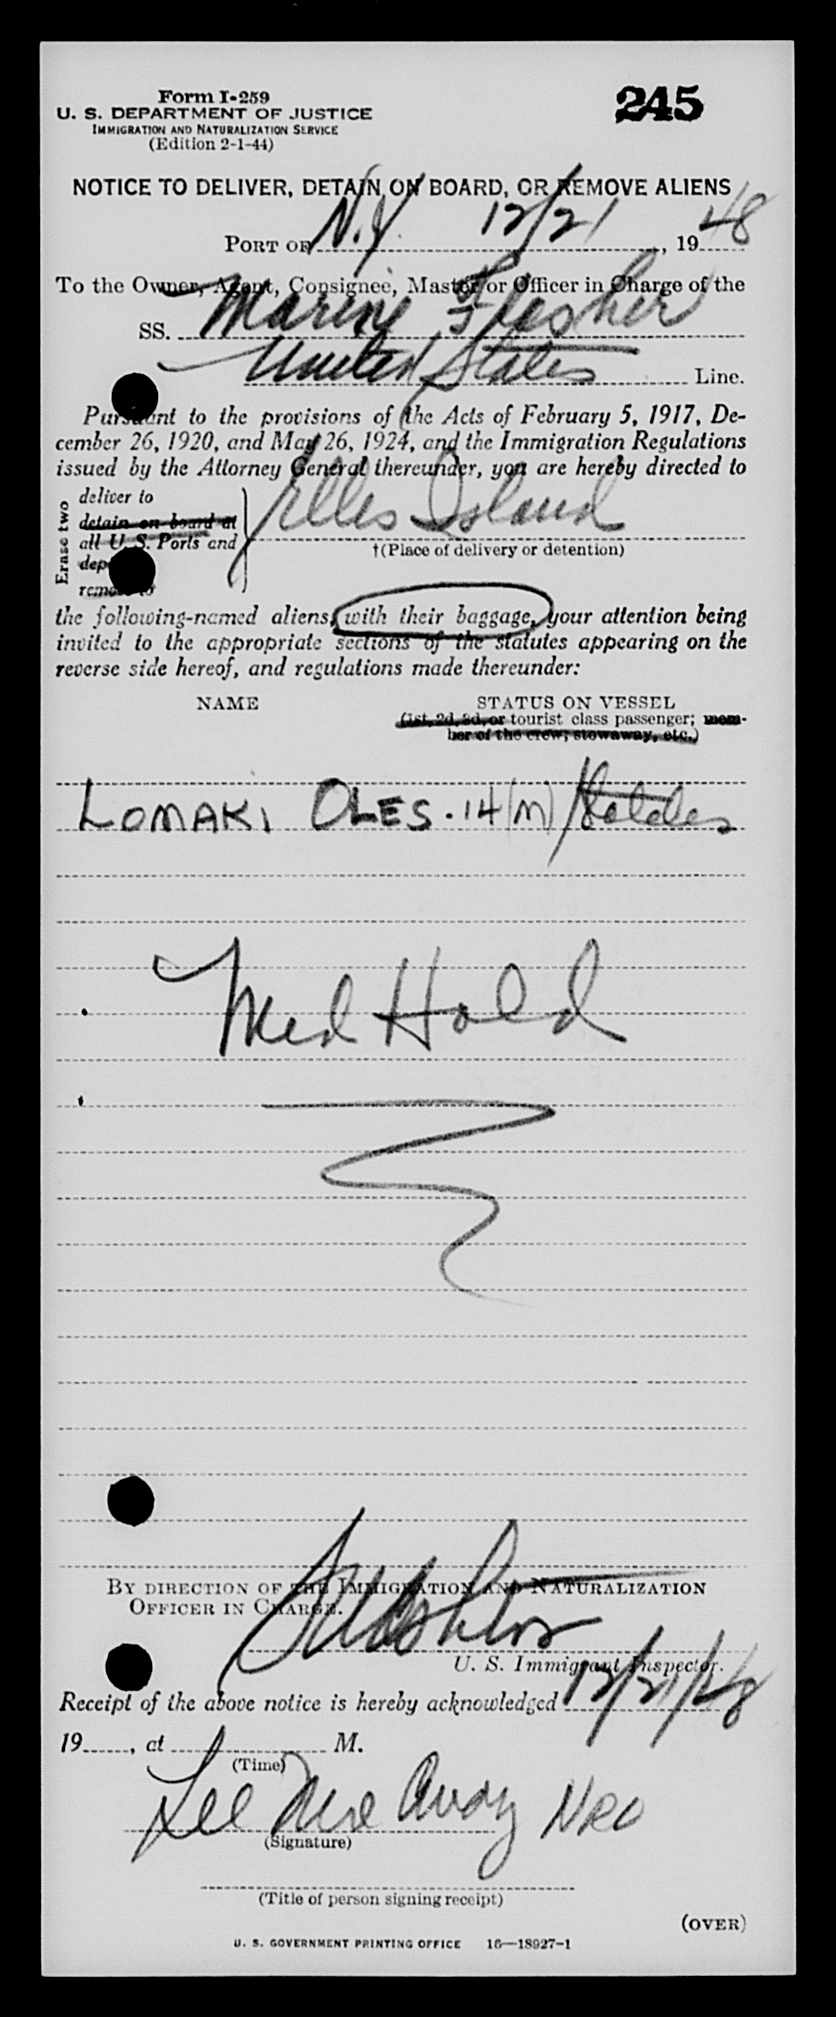 Form I-259
245
U. S. DEPARTMENT OF JUSTICE
IMMIGRATION AND NATURALIZATION SERVICE
(Edition 2-1-44)
NOTICE TO DELIVER, DETAIN ON BOARD, OR REMOVE ALIENS
PORT OF N.Y. 12/21, 1948
To the Owner, Agent, Consignee, Master or Officer in Charge of the
SS. Marine Flasher
United States Line.
Pursuant to the provisions of the Acts of February 5, 1917, De-
cember 26, 1920, and May 26, 1924, and the Immigration Regulations
issued by the Attorney General thereunder, you are hereby directed to
Erase two
deliver to
detain on board at
all U. S. Ports and
remove to
Ellis Island
†(Place of delivery or detention)
the following-named aliens, with their baggage, your attention being
invited to the appropriate sections of the statutes appearing on the
reverse side hereof, and regulations made thereunder:
NAME STATUS ON VESSEL
(1st, 2d, 3d, or tourist class passenger; mem-
ber of the crew; stowaway, etc.)
LOMAKI OLES. 14 (M)
Med Hold
BY DIRECTION OF THE IMMIGRATION AND NATURALIZATION
OFFICER IN CHARGE.
U. S. Immigrant Inspector.
Receipt of the above notice is hereby acknowledged 12/21/48
19......, at .................... M.
(Time)
Lee
(Signature)
(Title of person signing receipt)
(OVER)
U. S. GOVERNMENT PRINTING OFFICE 16—18927-1